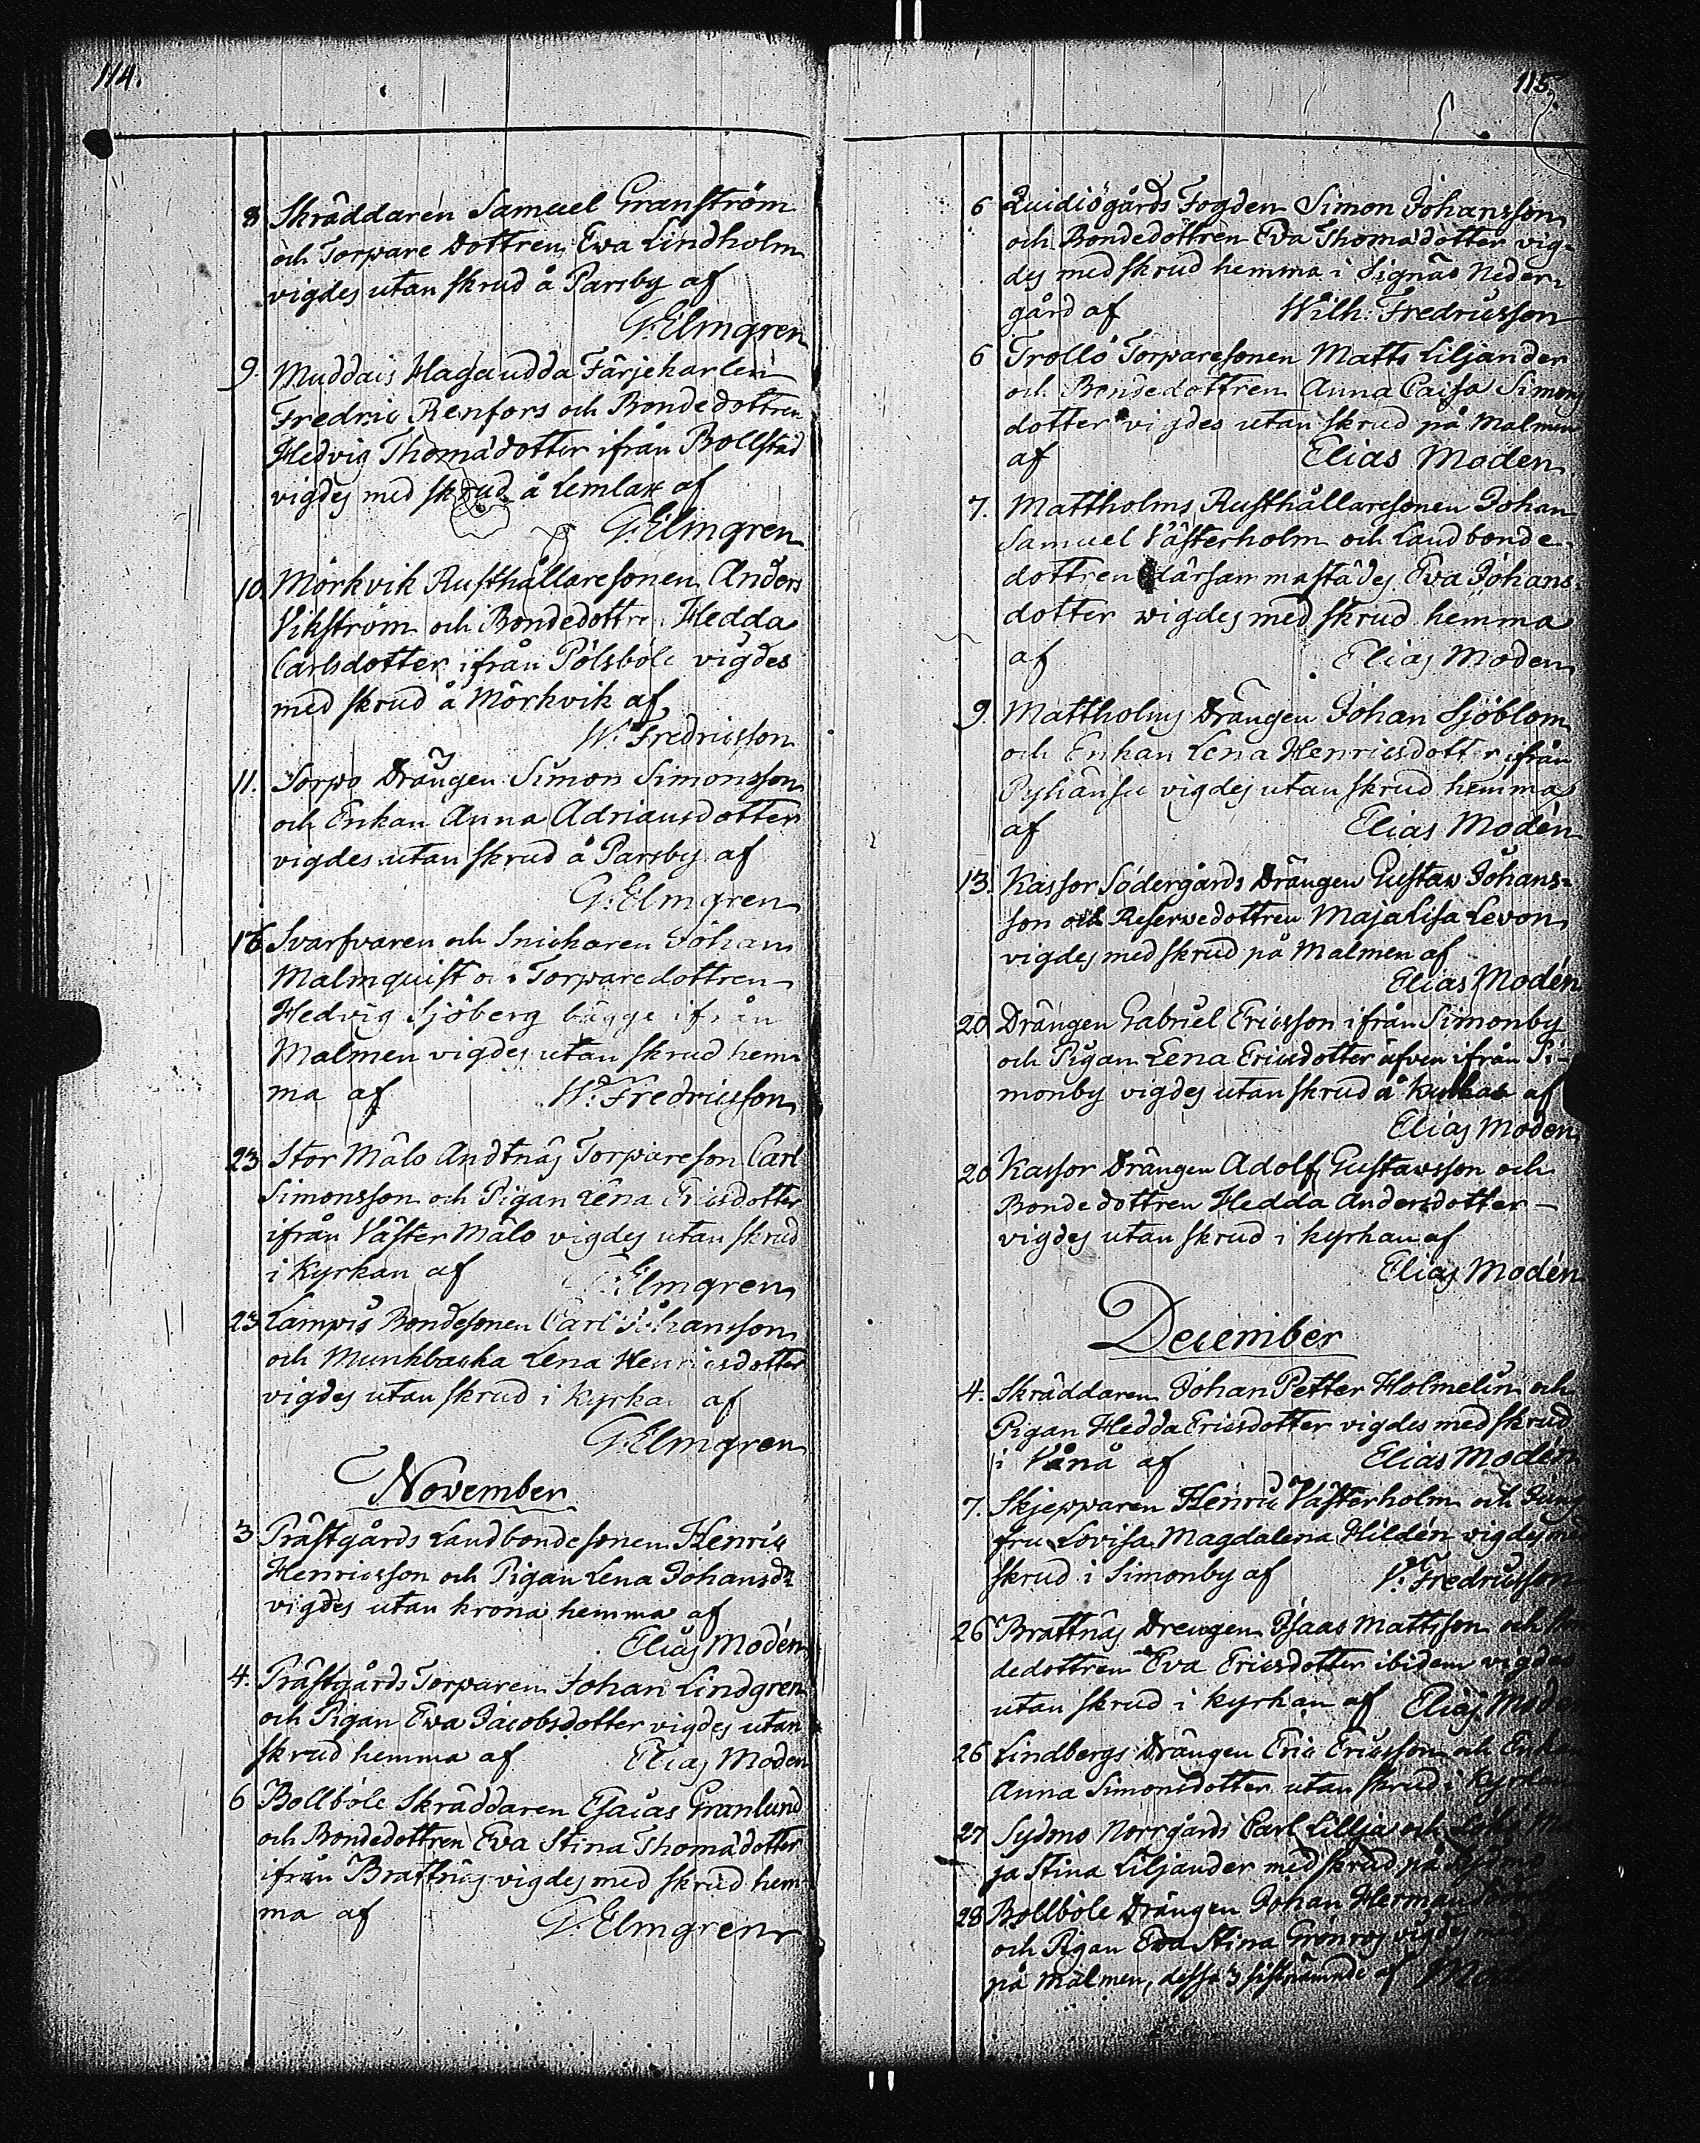 114.
8 Skräddaren Samuel Granström
och Torpare Dottren Ewa Lindholm
vigdes utan skrud å Parsby af
G. Elmgren
9. Muddais Hagaudda Färjekarlen
Fredric Renfors och Bondedottren
Hedvig Thomadotter ifrån Bollstad
vigdes med skrud å Lemlax af
G. Elmgren
10. Mörkvik Rusthållaresonen Anders
Vikström och Bondedottren Hedda
Carlsdotter ifrån Pölsböle vigdes
med skrud å Mörkvik af
W. Fredricsson
11. Sorpo Drängen Simon Simonsson
och Enkan Anna Adriansdotter
vigdes utan skrud å Parsby af
G. Elmgren
16 Svarfvaren och Snickaren Johan
Malmquist och Torparedottren
Hedvig Sjöberg bägge ifrån
Malmen vigdes utan skrud hem-
ma af W. Fredricsson
23 Stor Målo Andtnäs Torpareson Carl
Simonsson och Pigan Lena Ericsdotter
ifrån Väster Målo vigdes utan skrud
i Kyrkan af G. Elmgren
23 Lampis Bondesonen Carl Johansson
och Munkbacka Lena Henricsdotter
vigdes utan skrud i Kyrkan af
G. Elmgren
November
3 Prästgårds Landbondesonen Henric
Henricsson och Pigan Lena Johansdr
vigdes utan krona hemma af
Elias Modén
4. Prästgårds Torparen Johan Lindgren
och Pigan Ewa Jacobsdotter vigdes utan
skrud hemma af Elias Moden
6 Bollböle Skräddaren Esaias Granlund
och Bondedottren Eva Stina Thomadotter
ifrån Brattnäs vigdes med skrud hem-
ma af G. Elmgren
115.
6 Quidiögårds Fogden Simon Johansson
och Bondedottren Eva Thomadotter vig-
des med skrud hemma i Signäs Neder-
gård af Wilh. Fredricsson
6 Trollö Torparesonen Matts Liljander
och Bondedottren Anna Caisa Simons
dotter vigdes utan skrud på Malmen
af Elias Moden
7. Mattholms Rusthållaresonen Johan
Samuel Västerholm och Landbonde-
dottren därsammastädes Eva Johans-
dotter wigdes med skrud hemma
af Elias Moden
9. Mattholms Drängen Johan Sjöblom
och Enkan Lena Henricsdotter ifrån
Pyhänsu vigdes utan skrud hemma
af Elias Modén
13. Kassor Södergårds Drängen Gustaw Johans-
son och Reservedottren Maja Lisa Levon
vigdes med skrud på Malmen af
Elias Modén
20 Drängen Gabriel Ericsson ifrån Simonby
och Pigan Lena Ericsdotter äfven ifrån Si-
monby vigdes utan skrud å Kyrkan af
Elias Moden
20 Kassor Drängen Adolf Gustawsson och
Bondedottren Hedda Andersdotter -
vigdes utan skrud i kyrkan af
Elias Modén
December
4. Skräddaren Johan Petter Holmelin och
Pigan Hedda Ericsdotter vigdes med skrud
i Vånå af Elias Modén
7. Skjepparen Henric Västerholm och Jung-
fru Lovisa Magdalena Hildén vigdes med
skrud i Simonby af V. Fredricsson
26 Brattnäs Drengen Isaac Mattsson och
dedottren Eva Ericsdotter ibidem vigdes
utan skrud i kyrkan af Elias Moden
26 Lindbergs Drängen Eric Ericsson och Enkan
Anna Simonsdotter utan skrud i Kyrkan
27 Sydmo Norrgårds Carl Lillja och
ja Stina Liljander med skrud på Sydmo
28 Bollböle Drängen Johan Herman
och Pigan Ewa Stina Grönros vigdes med
på Malmen, dessa 3 sistnämnde af Modén